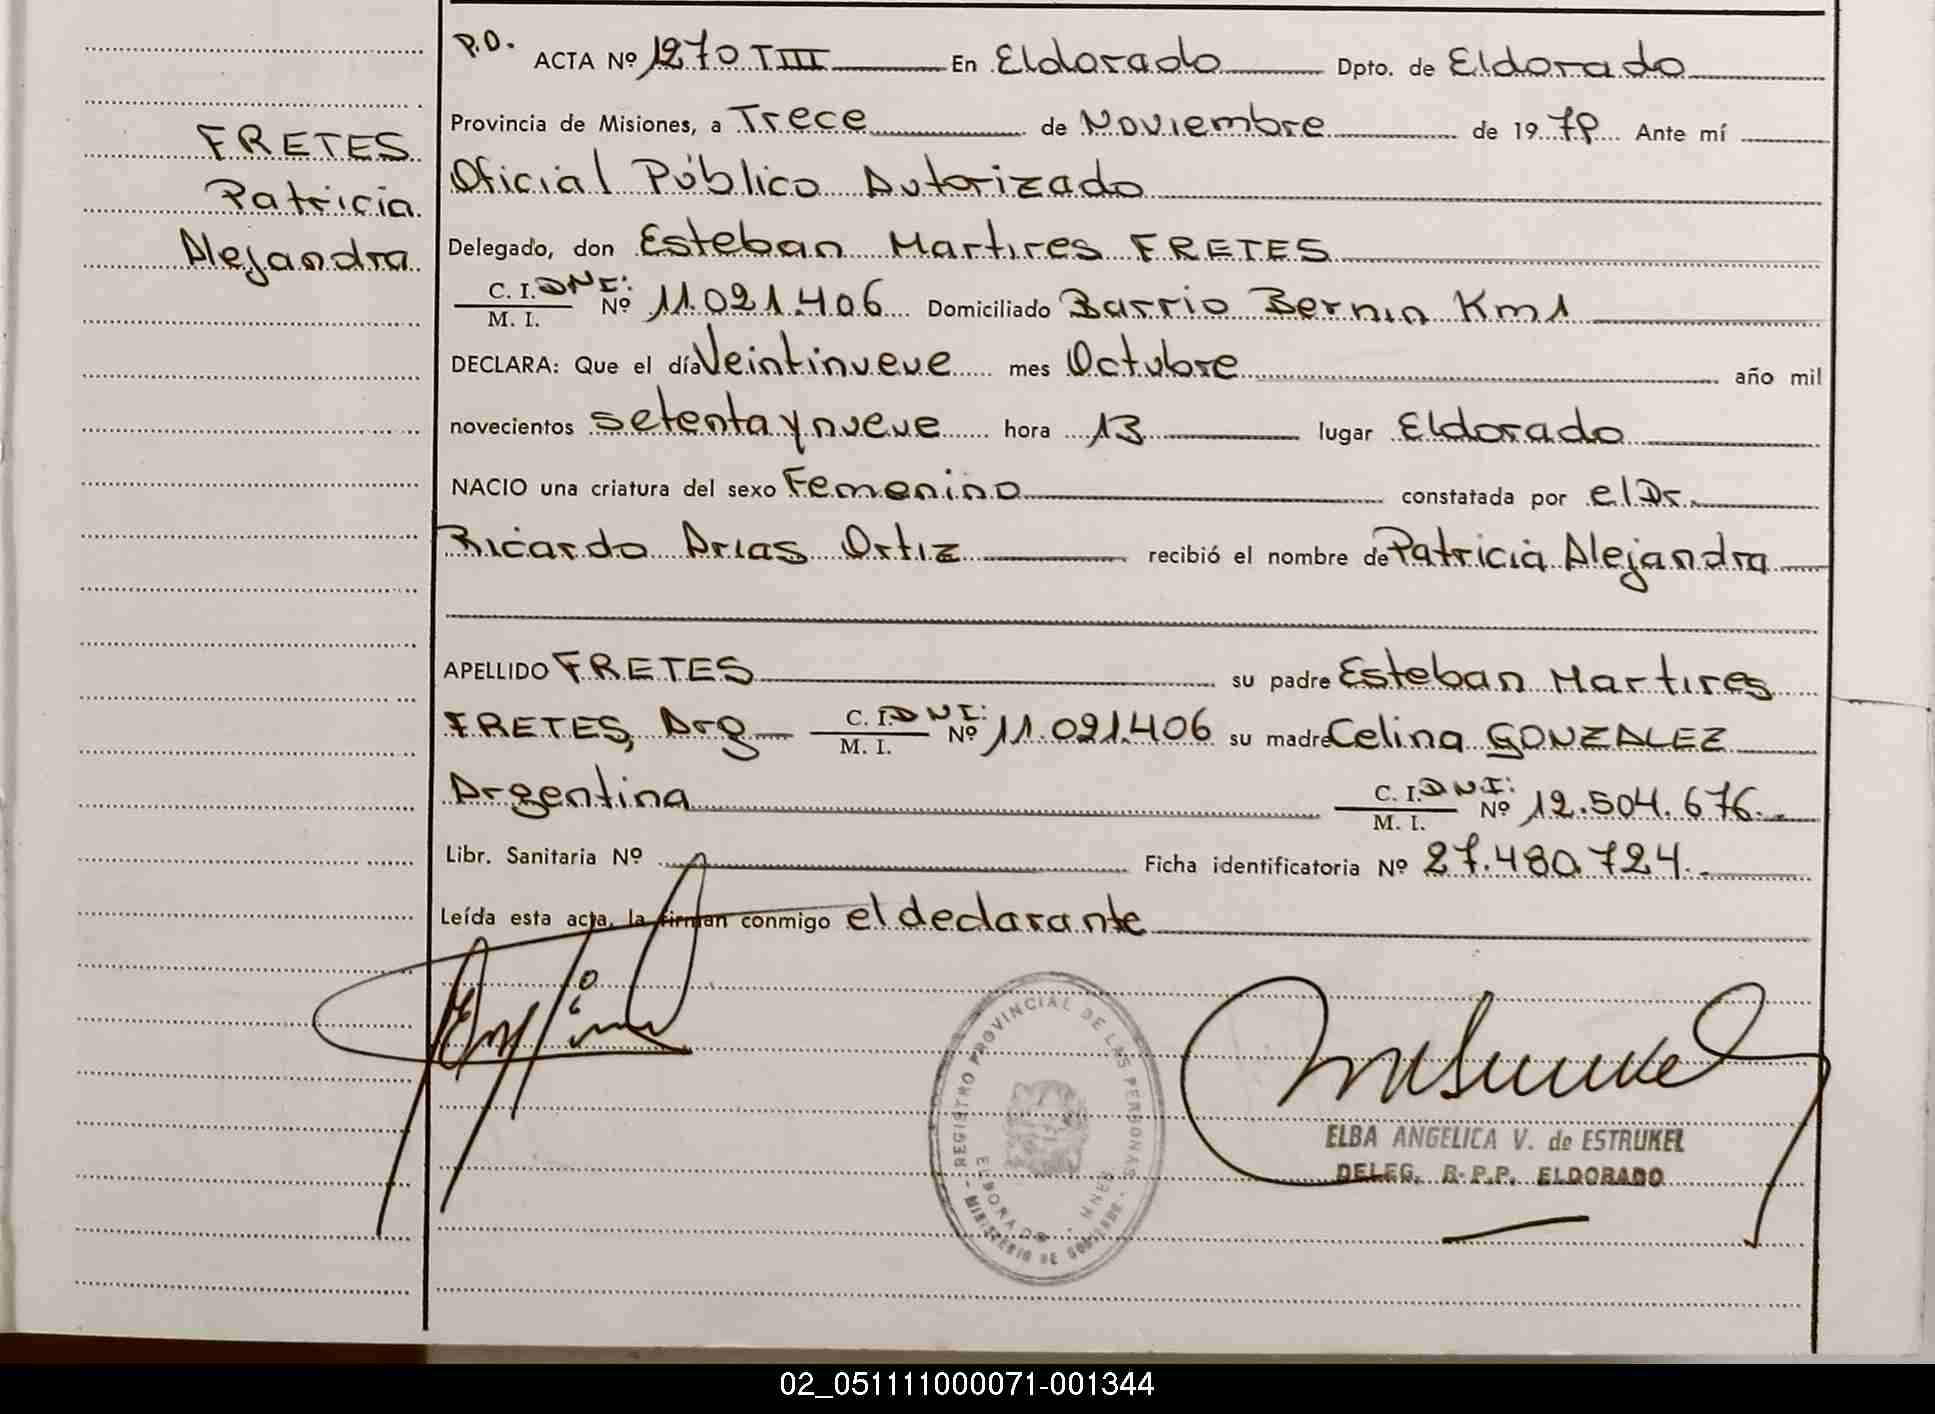 P.D. ACTA Nº 1270 T III En Eldorado Dpto. de Eldorado
Provincia de Misiones, a Trece de Noviembre de 1979 Ante mí
FRETES
Oficial Público Autorizado
Patricia
Delegado, don Esteban Martires FRETES
Alejandra
C. I. DNI:
M. I. Nº 11.021.406 Domiciliado Barrio Bernin Km 1
DECLARA: Que el día Veintinueve mes Octubre año mil
novecientos setenta y nueve hora 13 lugar Eldorado
NACIO una criatura del sexo Femenino constatada por el Dr.
Ricardo Arias Ortiz recibió el nombre de Patricia Alejandra
APELLIDO FRETES su padre Esteban Martires
FRETES, Arg C. I. DNI: M. I. Nº 11.021.406 su madre Celina GONZALEZ
Argentina C. I. DNI: M. I. Nº 12.504.676.
Libr. Sanitaria Nº Ficha identificatoria Nº 27.480.724.
Leída esta acta, la firman conmigo el declarante
REGISTRO PROVINCIAL DE LAS PERSONAS
ELDORADO
MINISTERIO DE GOBIERNO
ELBA ANGELICA V. de ESTRUKEL
DELEG. R.P.P. ELDORADO
02_051111000071-001344